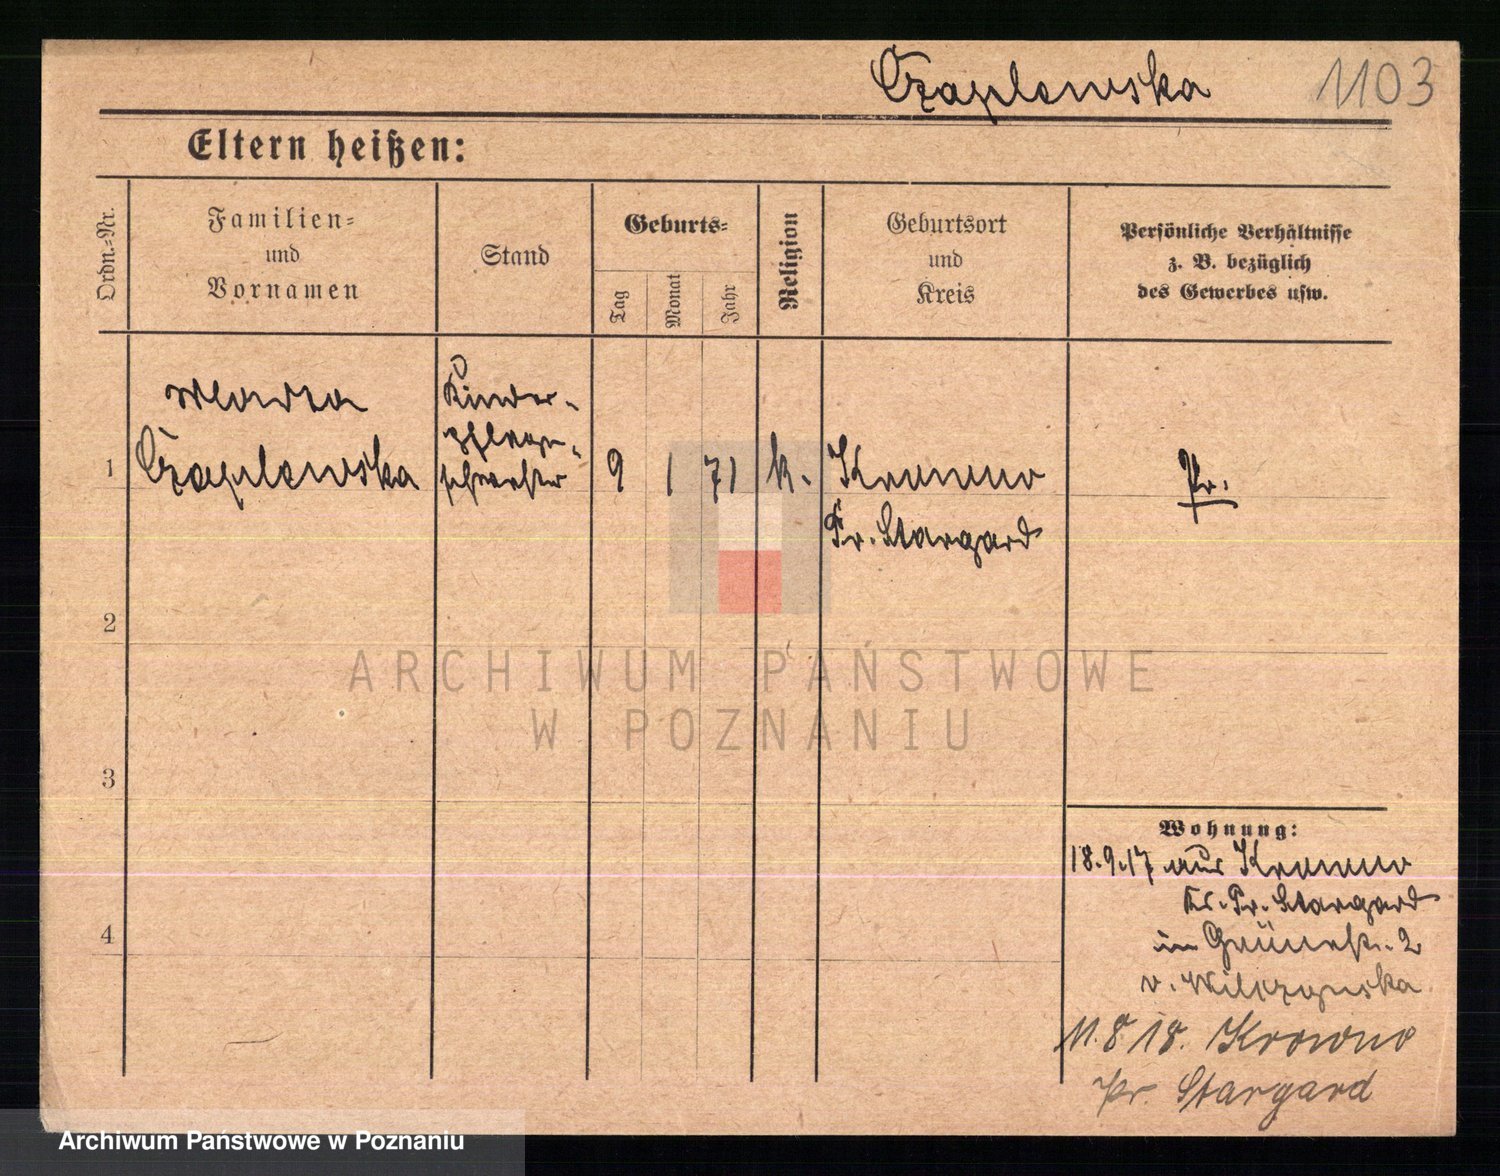 Czaplewska 1103
Eltern heißen:
Ordn.-Nr.
Familien-
und
Vornamen
Stand
Geburts-
Tag
Monat
Jahr
Religion
Geburtsort
und
Kreis
Persönliche Verhältnisse
z. B. bezüglich
des Gewerbes usw.
1
Maria
Czaplewska
Kinder-
pflege-
schwester
9 1 71 k.
Krowno
Pr. Stargard
Pr.
2
ARCHIWUM PAŃSTWOWE
W POZNANIU
3
Wohnung:
18.9.17 aus Krowno
Kr. Pr. Stargard
in Grünestr. 2
4
v. Wilczynska
11.8 18. Krowno
Pr. Stargard
Archiwum Państwowe w Poznaniu